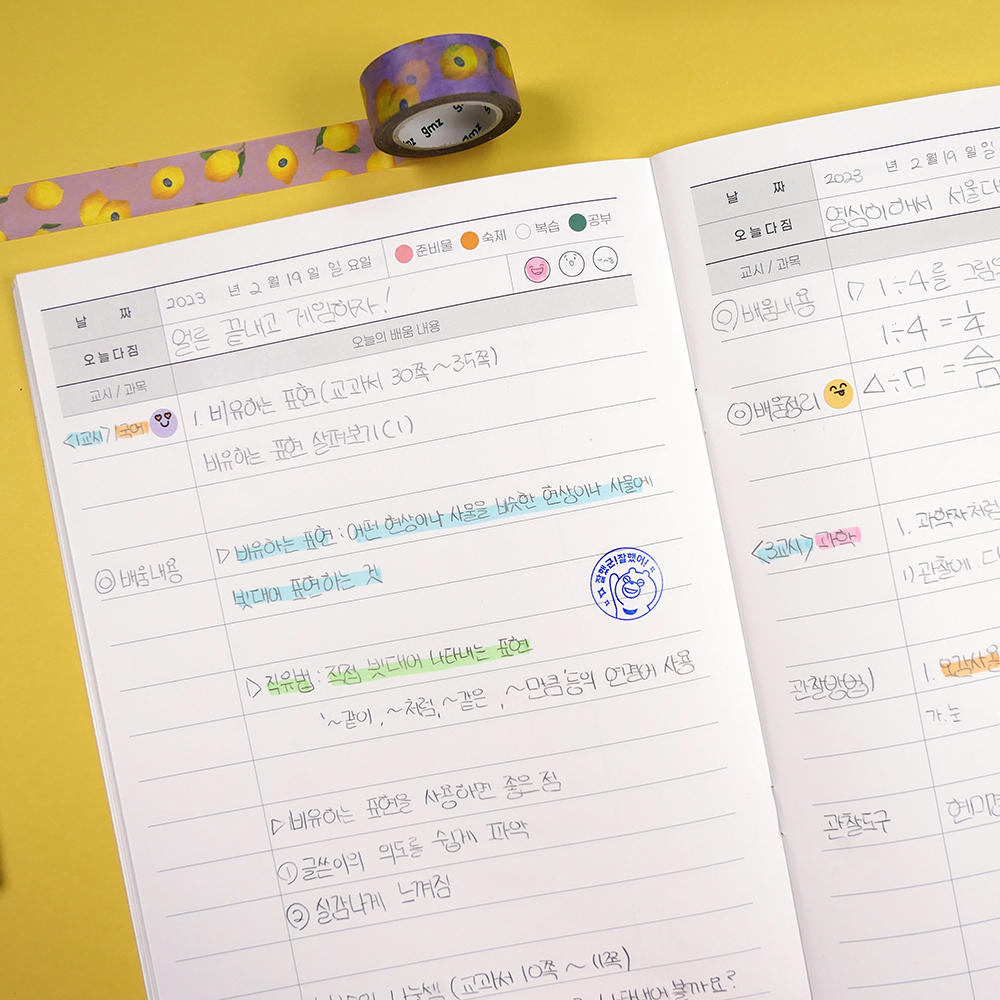 gmz
날 짜 2023 년 2 월 19 일 일 요일 준비물 숙제 복습 공부
오늘다짐 얼른 끝내고 게임하자!
교시 / 과목 오늘의 배움 내용
<1교시> 국어 1. 비유하는 표현 (교과서 30쪽 ~ 35쪽)
비유하는 표현 살펴보기 (1)
◎ 배움내용 ▷ 비유하는 표현 : 어떤 현상이나 사물을 비슷한 현상이나 사물에
빗대어 표현하는 것
잘했군! 잘했어!
▷ 직유법 : 직접 빗대어 나타내는 표현
'~같이, ~처럼, ~같은, ~만큼'등의 연결어 사용
▷ 비유하는 표현을 사용하면 좋은 점
① 글쓴이의 의도를 쉽게 파악
② 실감나게 느껴짐
(교과서 10쪽 ~ 11쪽)
나타내어 볼까요?
날 짜 2023 년 2 월 19 일 일
오늘다짐 열심히해서 서울대
교시 / 과목
◎ 배움내용 ▷ 1÷4를
1÷4 = 1/4
◎ 배움정리 △÷□ = △/□
<3교시> 과학 1. 과학자처럼
1) 관찰에
관찰방법 1. 오감사용
가. 눈
관찰도구 현미경